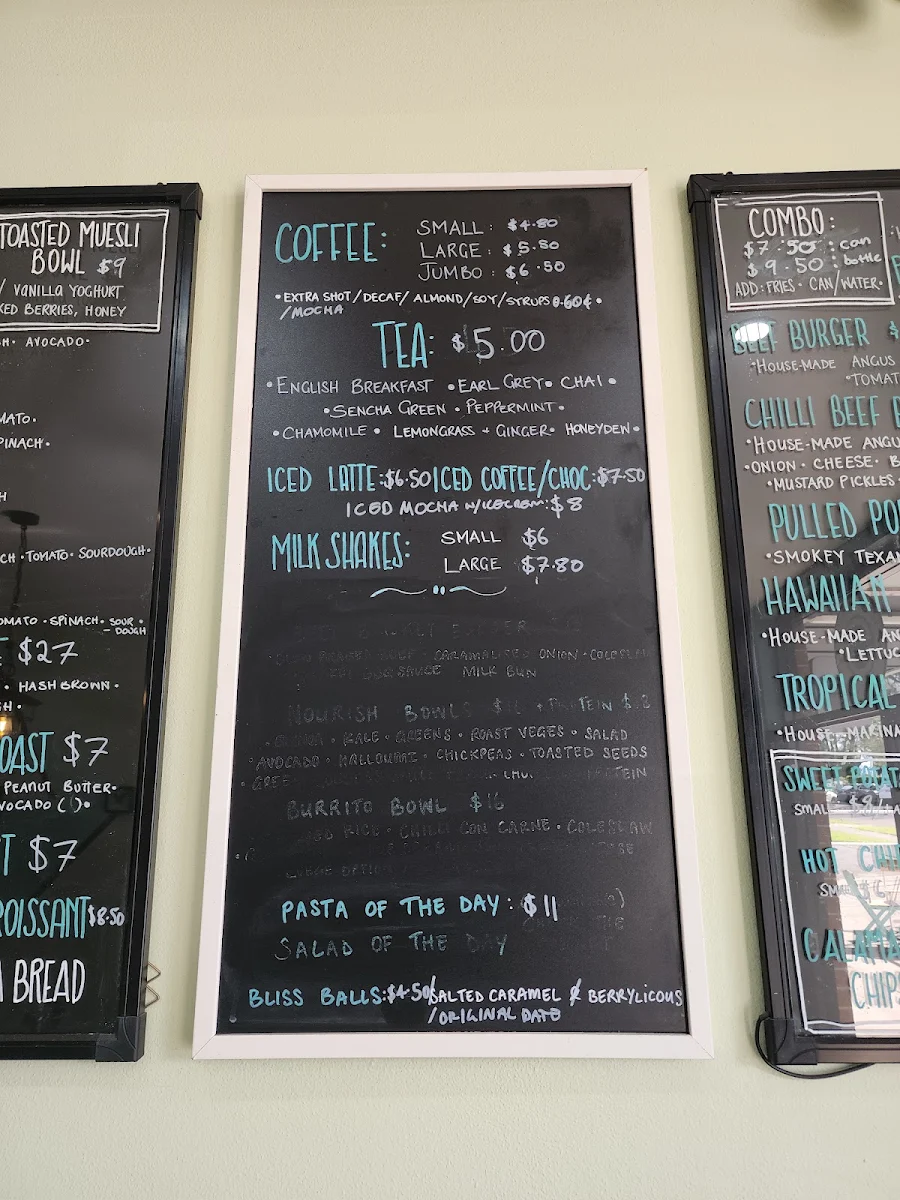 TOASTED MUESLI
BOWL $9
/ VANILLA YOGHURT
KED BERRIES, HONEY
H • AVOCADO •
MATO •
PINACH •
H
CH • TOMATO • SOURDOUGH •
OMATO • SPINACH • SOUR
- DOUGH
$27
• HASH BROWN •
GH •
OAST $7
PEANUT BUTTER •
VOCADO
T $7
ROISSANT $8.50
A BREAD
COFFEE: SMALL: $4.80
LARGE: $5.50
JUMBO: $6.50
• EXTRA SHOT/DECAF/ ALMOND/SOY/SYRUPS 0.60¢ •
/MOCHA
TEA: $5.00
• ENGLISH BREAKFAST • EARL GREY • CHAI •
• SENCHA GREEN • PEPPERMINT •
• CHAMOMILE • LEMONGRASS + GINGER • HONEYDEW •
ICED LATTE: $6.50 ICED COFFEE/CHOC: $7.50
ICED MOCHA W/ICECREAM: $8
MILKSHAKES: SMALL $6
LARGE $7.80
CARAMALISED ONION • COLESLAW
SAUCE MILK BUN
NOURISH BOWLS + PROTEIN
• KALE • GREENS • ROAST VEGES • SALAD
• AVOCADO • HALLOUMI • CHICKPEAS • TOASTED SEEDS
BURRITO BOWL $16
RICE • CHILLI CON CARNE • COLESLAW
PASTA OF THE DAY: $11
SALAD OF THE DAY
BLISS BALLS: $4.50 SALTED CARAMEL / BERRYLICIOUS
/ORIGINAL DATE
COMBO:
$7.50: can
$9.50: bottle
ADD: FRIES • CAN/WATER •
BEEF BURGER $
• HOUSE-MADE ANGUS
• TOMAT
CHILLI BEEF B
• HOUSE-MADE ANGU
• ONION • CHEESE • B
• MUSTARD PICKLES •
PULLED PO
• SMOKEY TEXA
HAWAIIAN
• HOUSE-MADE AN
• LETTUC
TROPICAL
• HOUSE-MARINA
SWEET POTAT
SMAL
HOT CHI
CALAMA
CHIPS